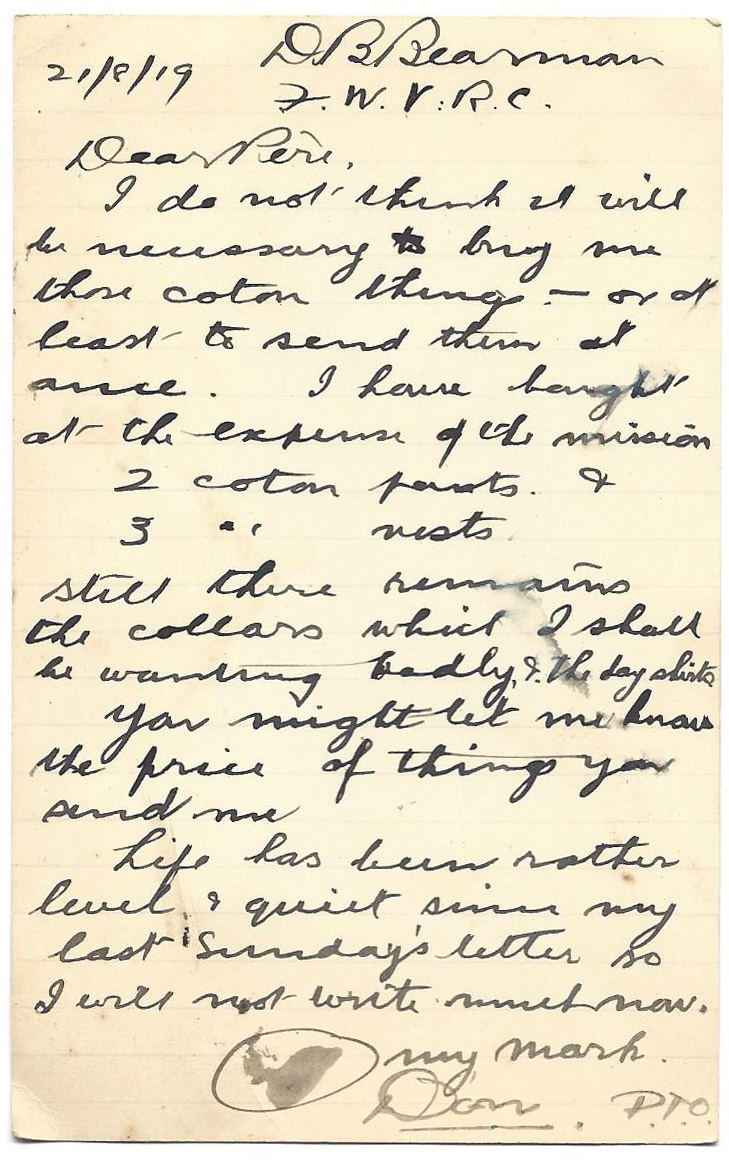 21/8/19 D. B. Bearman
F. W. V. R. C.
Dear Père,
I do not think it will
be necessary to buy me
those coton things – or at
least to send them at
once. I have bought
at the expense of the mission
2 coton pants. &
3 " vests
still there remains
the collars which I shall
be wanting badly, & the day shirts
You might let me know
the price of things you
send me
Life has been rather
level & quiet since my
last Sunday's letter so
I will not write much now.
my mark.
Don. P.T.O.